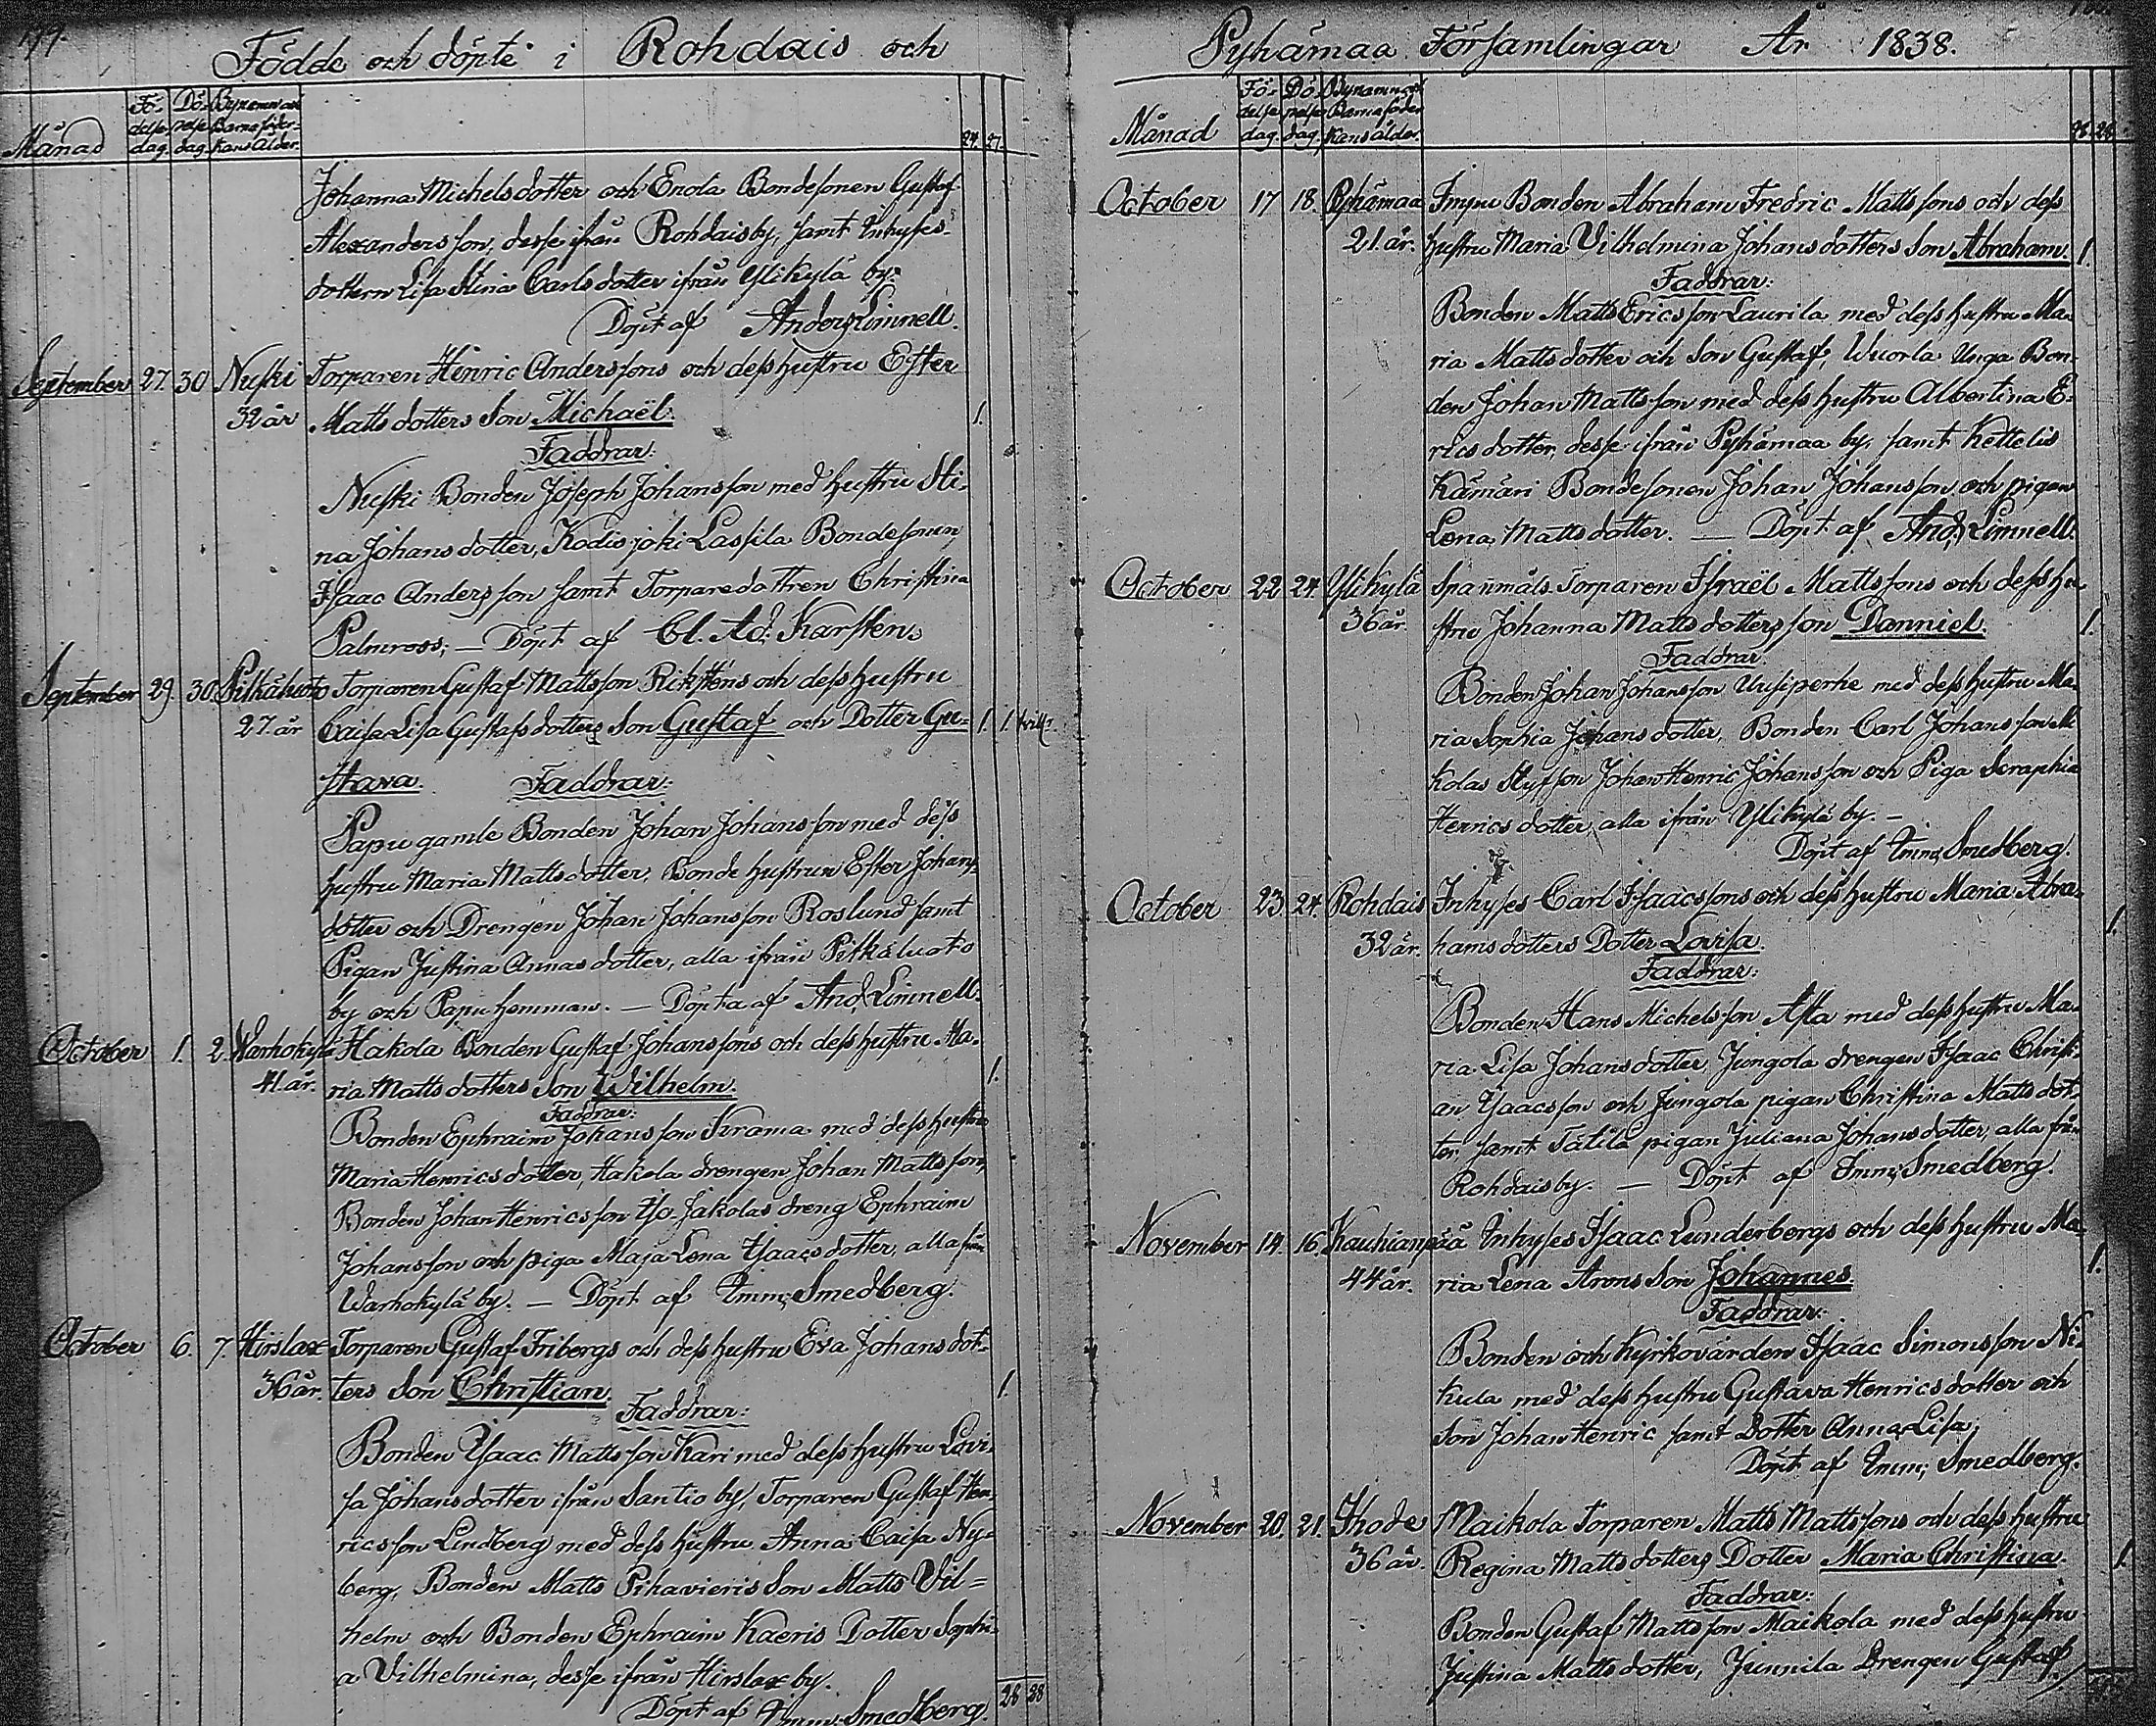 199.
Födde och döpte i Rohdais och
Månad
Fö-
delse
dag.
Dö-
pelse
dag.
Bynamn och
Barnaföder-
skans ålder.
24. 27.
Johanna Michelsdotter och Enola Bondesonen Gustaf
Alexandersson, desse ifrån Rohdaisby, samt Inhyses-
dottern Lisa Stina Carlsdotter ifrån Ylikylä by.
Döpt af Anders Limnell.
September 27. 30 Nuski Torparen Hinric Anderssons och dess hustru Ester
32 år Mattsdotters Son Michaël. 1.
Faddrar:
Nuski Bonden Joseph Johansson med hustru Sti-
na Johansdotter, Kodisjoki Lassila Bondesonen
Isaac Andersson samt Torparedottren Christina
Palmross; — Döpt af Cl. Ad: Karsten.
September 29. 30. Pitkäluoto Torparen Gustaf Mattsson Rikstens och dess hustru
27. år Caisa Lisa Gustafsdotters Son Gustaf och Dotter Gu- 1. 1. tvill:
stava. Faddrar:
Papu gamle Bonden Johan Johansson med dess
hustru Maria Mattsdotter, Bonde hustrun Ester Johans-
dotter och Drengen Johan Johansson Roslund samt
Pigan Justina Annasdotter, alla ifrån Pitkäluoto
by och Papu hemman. — Döpta af And: Limnell.
October 1. 2. Warhokylä Hakola Bonden Gustaf Johanssons och dess hustru Ma-
41. år. ria Mattsdotters Son Wilhelm. 1.
Faddrar:
Bonden Ephraim Johansson Krama med dess hustru
Maria Henricsdotter, Hakola drengen Johan Mattsson,
Bonden Johan Henricsson Yso Jakolas dreng Ephraim
Johansson och piga Maja Lena Ysaacsdotter, alla från
Warhokylä by. — Döpt af Imm; Smedberg.
October 6. 7. Hirslax Torparen Gustaf Fribergs och dess hustru Eva Johansdot-
36 år. ters Son Christian. 1.
Faddrar:
Bonden Ysaac Mattsson Kari med dess hustru Lovi-
sa Johansdotter ifrån Santio by, Torparen Gustaf Hen-
ricsson Lindberg med dess hustru Anna Caisa Ny-
berg, Bonden Matts Pihavieris Son Matts Vil=
helm och Bonden Ephraim Kaeris Dotter Sophi-
a Vilhelmina, desse ifrån Hirslax by.
Döpt af Imm; Smedberg. 28 28
Pyhämaa Församlingar År 1838.
Månad
Fö-
delse
dag.
Dö-
pelse
dag.
Bynamn och
Barnaföder
skans ålder.
28. 28.
October 17 18. Pyhämaa Impu Bonden Abraham Fredric Mattssons och dess
21. år. hustru Maria Vilhelmina Johansdotters Son Abraham. 1.
Faddrar:
Bonden Matts Ericsson Laurila med dess hustru Ma-
ria Mattsdotter och Son Gustaf, Wuorla Unga Bon-
den Johan Mattsson med dess hustru Albertina E-
ricsdotter, desse ifrån Pyhämaa by, samt Kettelis
Kämäri Bondesonen Johan Johansson och pigan
Lena Mattsdotter. — Döpt af And; Limnell.
October 22 24. Ylikylä Spanmåls Torparen Israël Mattssons och dess hu-
36 år. stru Johanna Mattsdotters son Danniel. 1.
Faddrar.
Bonden Johan Johansson Uusiperhe med dess hustru Ma-
ria Sophia Johansdotter, Bonden Carl Johansson Ni
kolas Styfson Johan Henric Johansson och Piga Seraphia
Henricsdotter, alla ifrån Ylikylä by. —
Döpt af Imm; Smedberg.
October 23. 24. Rohdais Inhyses Carl Isaacssons och dess hustru Maria Abra-
32 år. hamsdotters Dotter Lovisa. 1.
Faddrar:
Bonden Hans Michelsson Asta med dess hustru Ma-
ria Lisa Johansdotter, Jungola drengen Isaac Christi-
an Ysaacsson och Jungola pigan Christina Mattsdot-
ter, samt Tätilä pigan Juliana Johansdotter, alla från
Rohdaisby. — Döpt af Imm; Smedberg.
November 14. 16. Kauhianpää Inhyses Isaac Lunderbergs och dess hustru Ma-
44 år. ria Lena Arons Son Johannes. 1.
Faddrar:
Bonden och Kyrkovärden Isaac Simonsson Ni-
kula med dess hustru Gustava Henricsdotter och
Son Johan Henric samt Dotter Anna Lisa;
Döpt af Imm; Smedberg.
November 20. 21. Ihode Maikola Torparen Matts Mattssons och dess hustru
36 år. Regina Mattsdotters Dotter Maria Christina. 1.
Faddrar:
Bonden Gustaf Mattsson Maikola med dess hustru
Justina Mattsdotter, Junnila Drengen Gustaf